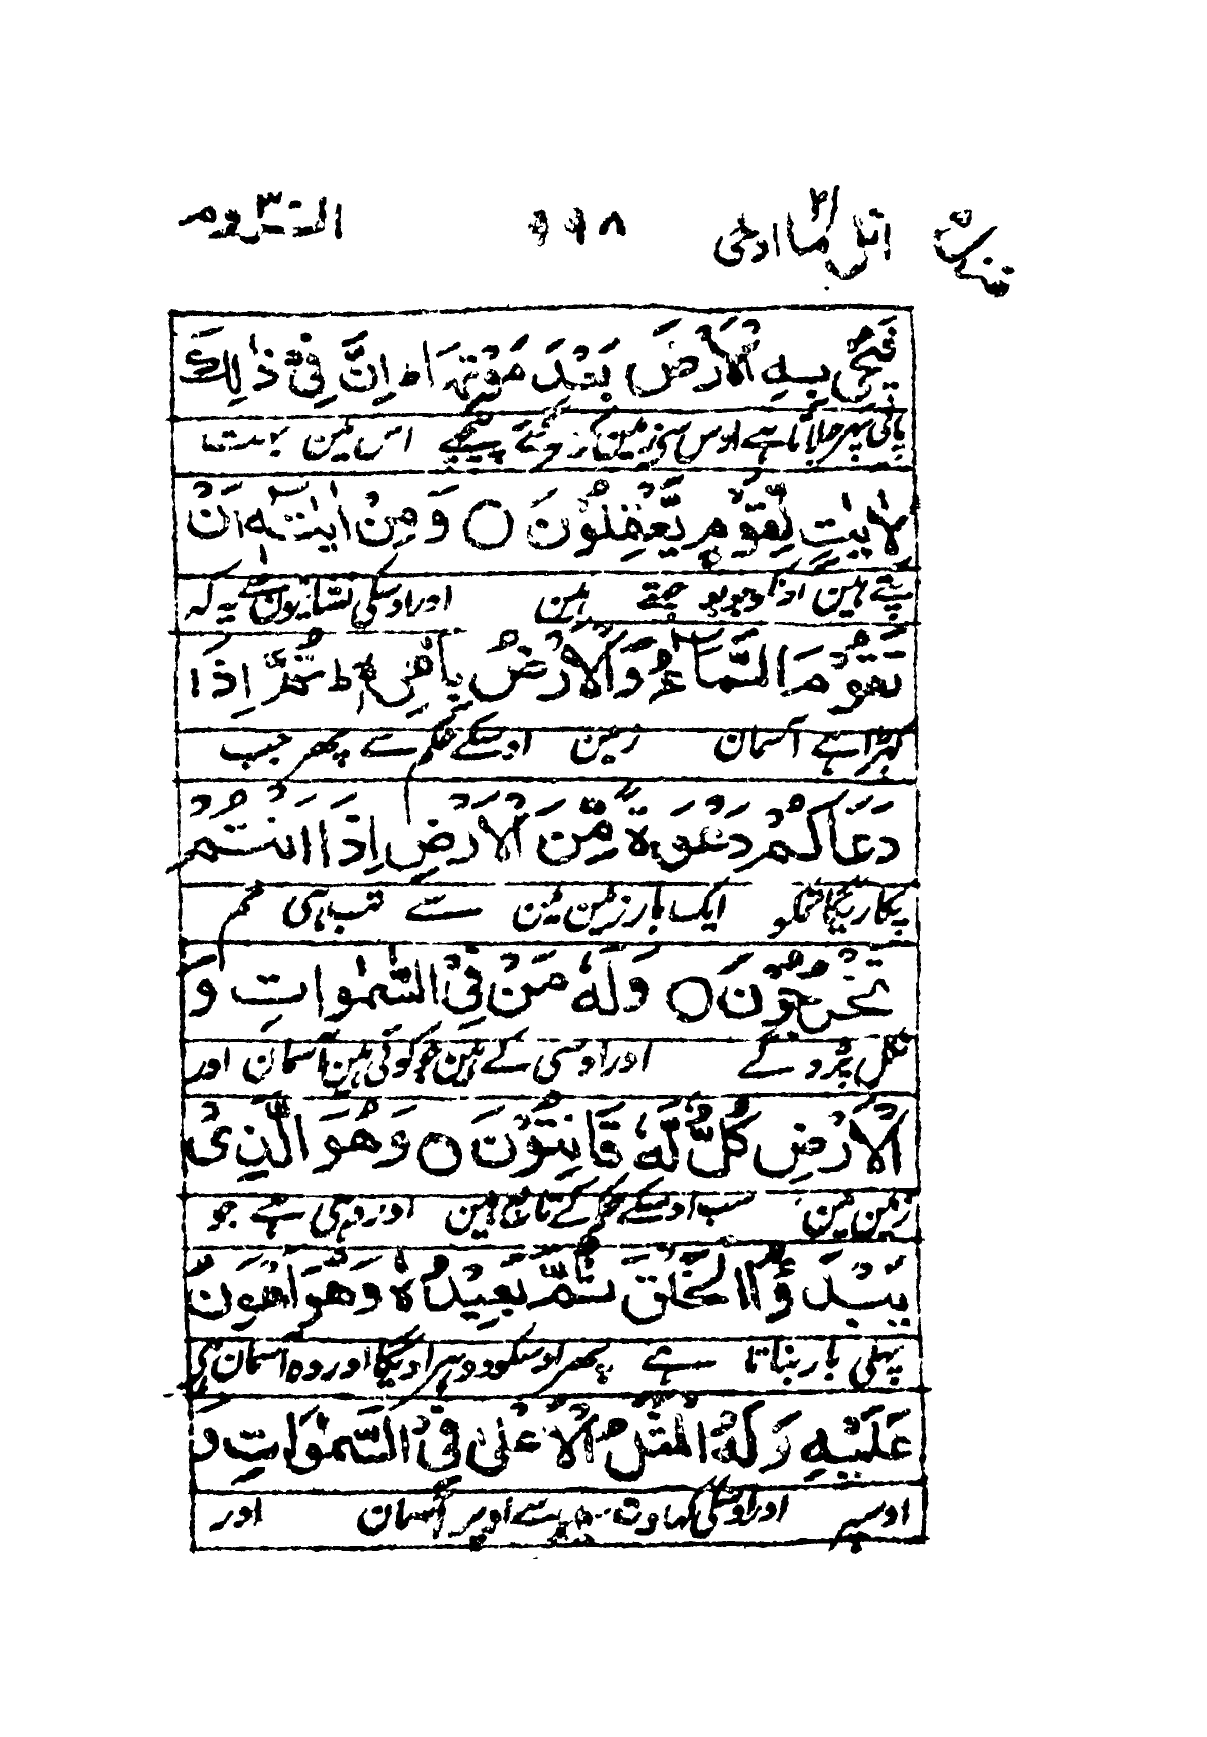 اتل ما اوحی ٢١ ٩٩٨ الروم ٣٠
فَيُحْيٖ بِهِ الْاَرْضَ بَعْدَ مَوْتِهَا ط اِنَّ فِيْ ذٰلِكَ
پانی پھر جلاتا ہے اوس سے زمین کو مرگئے پیچھے اس مین بہت
لَاٰيٰتٍ لِّقَوْمٍ يَّعْقِلُوْنَ ○ وَمِنْ اٰيٰتِهٖٓ اَنْ
پتے ہین اونکو جو بوجھتے ہین اور اوسکی نشانیون سے یہ کہ
تَقُوْمَ السَّمَآءُ وَالْاَرْضُ بِاَمْرِهٖ ط ثُمَّ اِذَا
کھڑا ہے آسمان زمین اوسکے حکم سے پھر جب
دَعَاكُمْ دَعْوَةً مِّنَ الْاَرْضِ اِذَا اَنْتُمْ
پکاریگا تمکو ایک بار زمین مین سے تب ہی تم
تَخْرُجُوْنَ ○ وَلَهٗ مَنْ فِي السَّمٰوٰتِ وَ
نکل پڑو گے اور اوسی کے ہین جو کوئی ہین آسمان اور
الْاَرْضِ كُلٌّ لَّهٗ قَانِتُوْنَ ○ وَهُوَ الَّذِيْ
زمین مین سب اوسکے حکم کے تابع ہین اور وہی ہے جو
يَبْدَؤُا الْخَلْقَ ثُمَّ يُعِيْدُهٗ وَهُوَ اَهْوَنُ
پہلی بار بناتا ہے پھر اوسکو دوہراویگا اور وہ آسان ہی
عَلَيْهِ وَلَهُ الْمَثَلُ الْاَعْلٰى فِي السَّمٰوٰتِ وَ
اوسپر اور اوسکی کہاوت سب سے اوپر آسمان اور